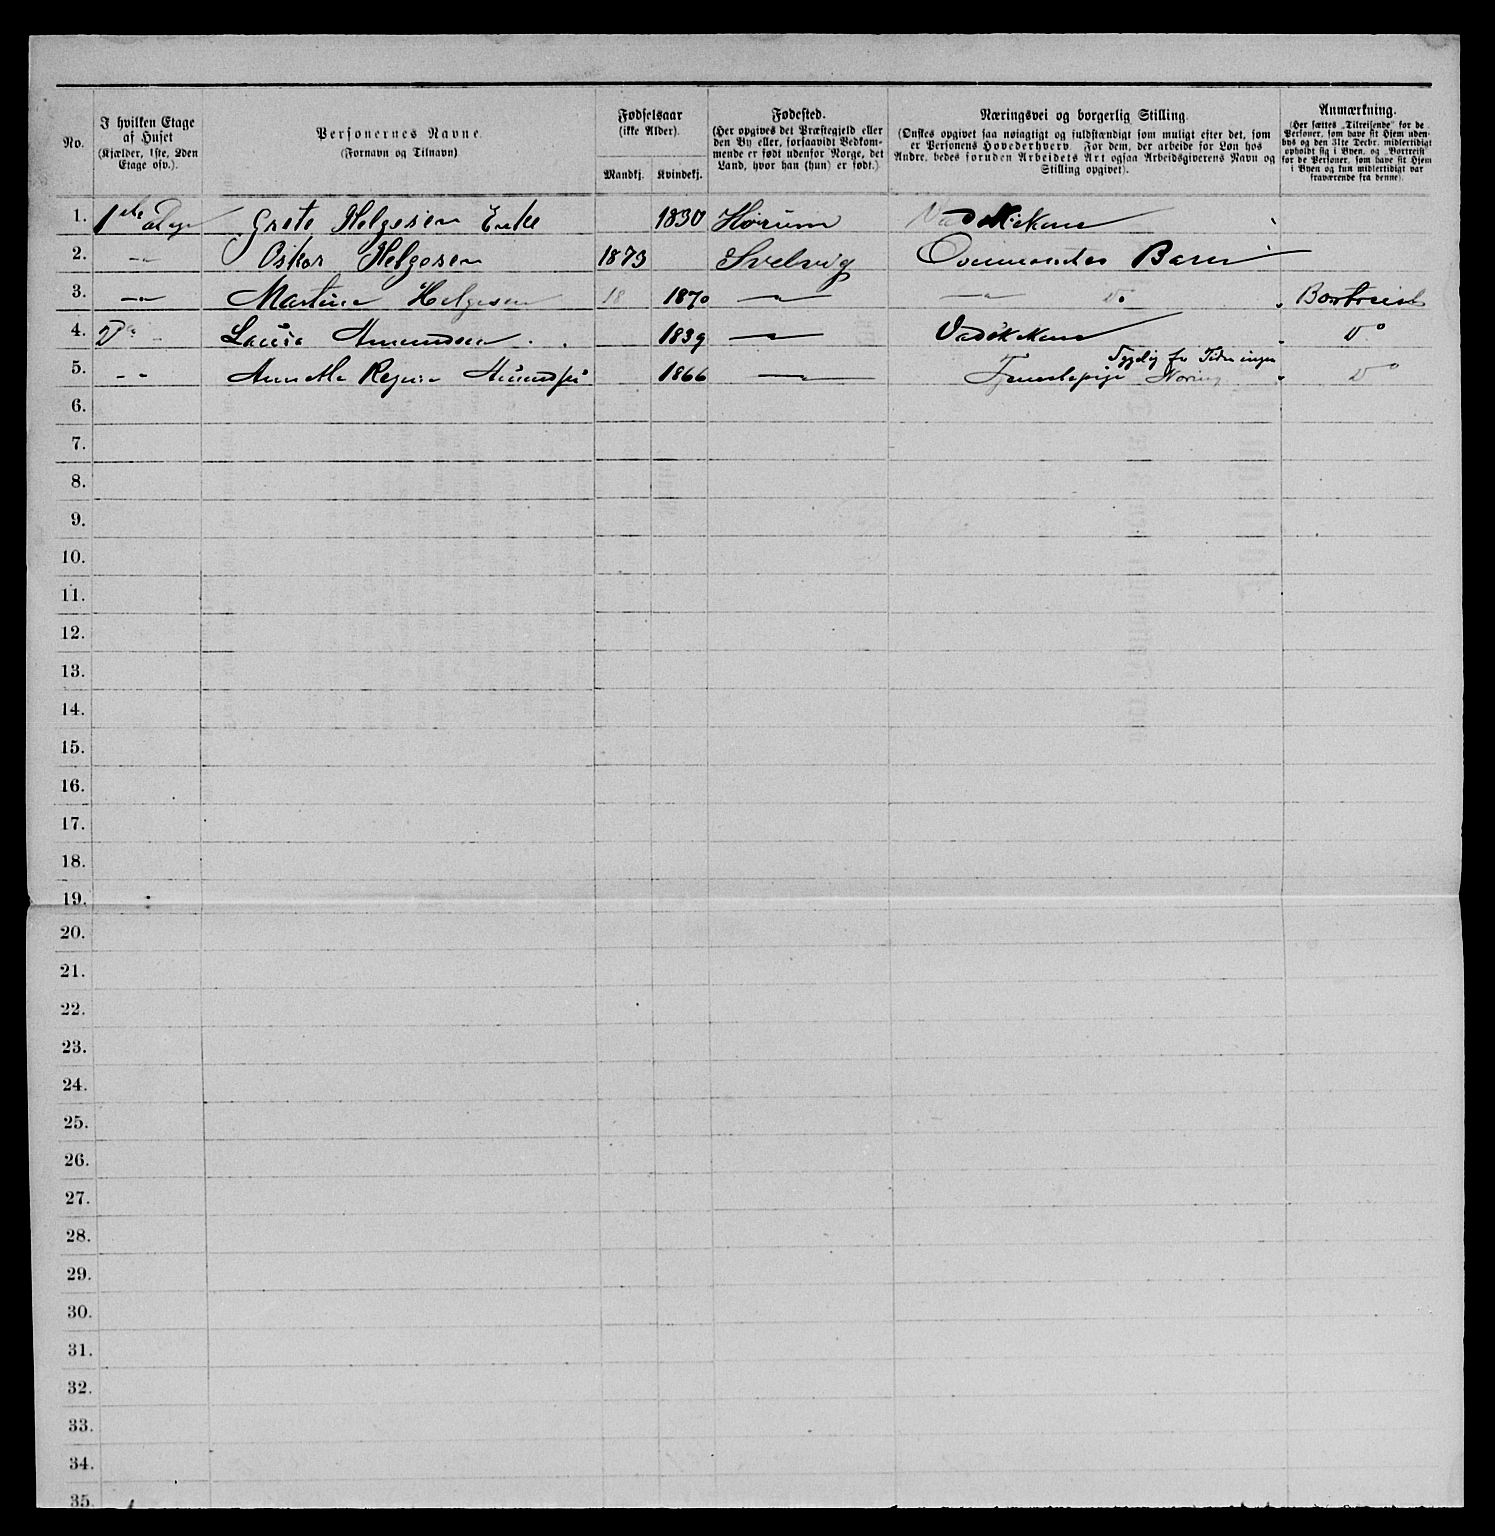 No. | I hvilken Etage af Huset (Kjælder, 1ste, 2den Etage osv.). | Personernes Navne. (Fornavn og Tilnavn) | Fødselsaar (ikke Alder). Mandkj. | Kvindekj. | Fødested. (Her opgives det Præstegjeld eller den By eller, forsaavidt Vedkommende er født udenfor Norge, det Land, hvor han (hun) er født.) | Næringsvei og borgerlig Stilling. (Ønskes opgivet saa nøiagtigt og fuldstændigt som muligt efter det, som er Personens Hovederhverv. For dem, der arbeide for Løn hos Andre, bedes foruden Arbeidets Art ogsaa Arbeidsgiverens Navn og Stilling opgivet). | Anmærkning. (Her sættes „Tilreisende" for de Personer, som have sit Hjem udenbys og den 31te Decbr. midlertidigt opholdt sig i Byen, og „Bortreist" for de Personer, som have sit Hjem i Byen og kun midlertidigt var fraværende fra denne).
1. | 1ste Etage | Grete Helgesen Enke | | 1830 | Hørum | Vadskekone
2. | -"- | Oskar Helgesen | 1873 | | Svelvig | Ovennævntes Barn
3. | -"- | Martine Helgesen | 18 | 1870 | -"- | -"- Do | Bortreist
4. | Do | Lauisa Amundsen | | 1839 | -"- | Vadskekone | Do
5. | -"- | Annette Regine Amundsen | | 1866 | -"- | Tjenestepige | Do
6.
7.
8.
9.
10.
11.
12.
13.
14.
15.
16.
17.
18.
19.
20.
21.
22.
23.
24.
25.
26.
27.
28.
29.
30.
31.
32.
33.
34.
35.